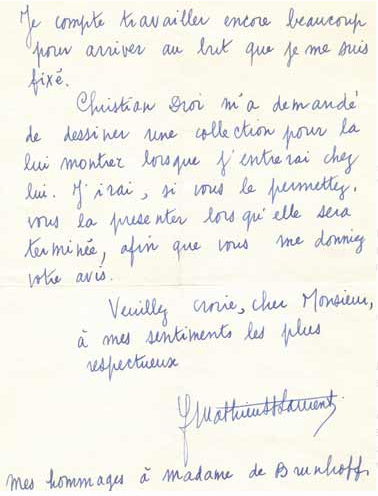 Je compte travailler encore beaucoup
pour arriver au but que je me suis
fixé.
Christian Dior m'a demandé
de dessiner une collection pour la
lui montrer lorsque j'entrerai chez
lui. J'irai, si vous le permettez,
vous la présenter lorsqu'elle sera
terminée, afin que vous me donniez
votre avis.
Veuillez croire, cher Monsieur,
à mes sentiments les plus
respectueux
YMathieuStLaurent.
mes hommages à madame de Brunhoff.